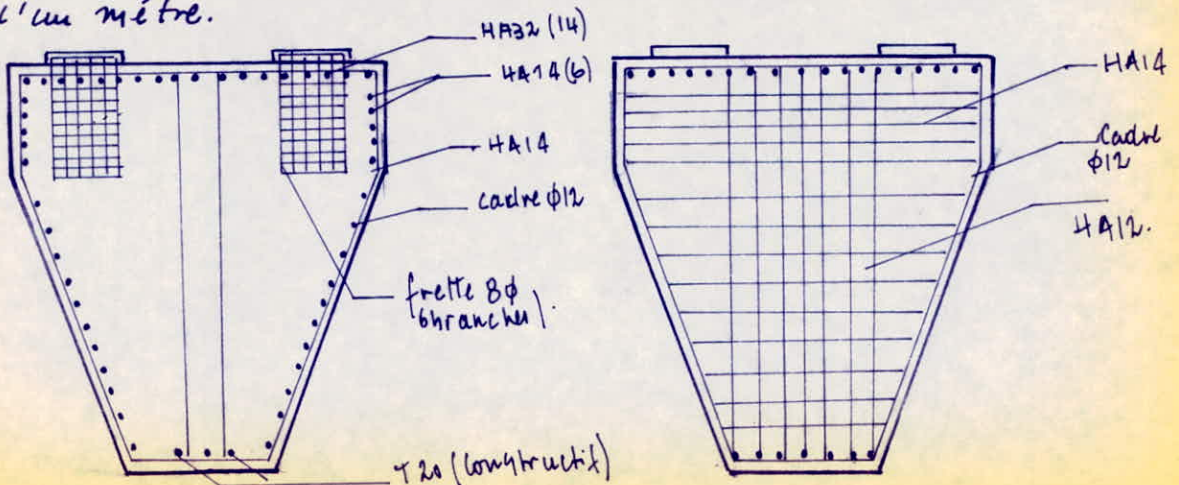 d'un mètre.
HA32 (14)
HA14 (6)
HA14
cadre φ12
frette 8φ
6branches).
T20 (constructif)
HA14
Cadre
φ12
HA12.